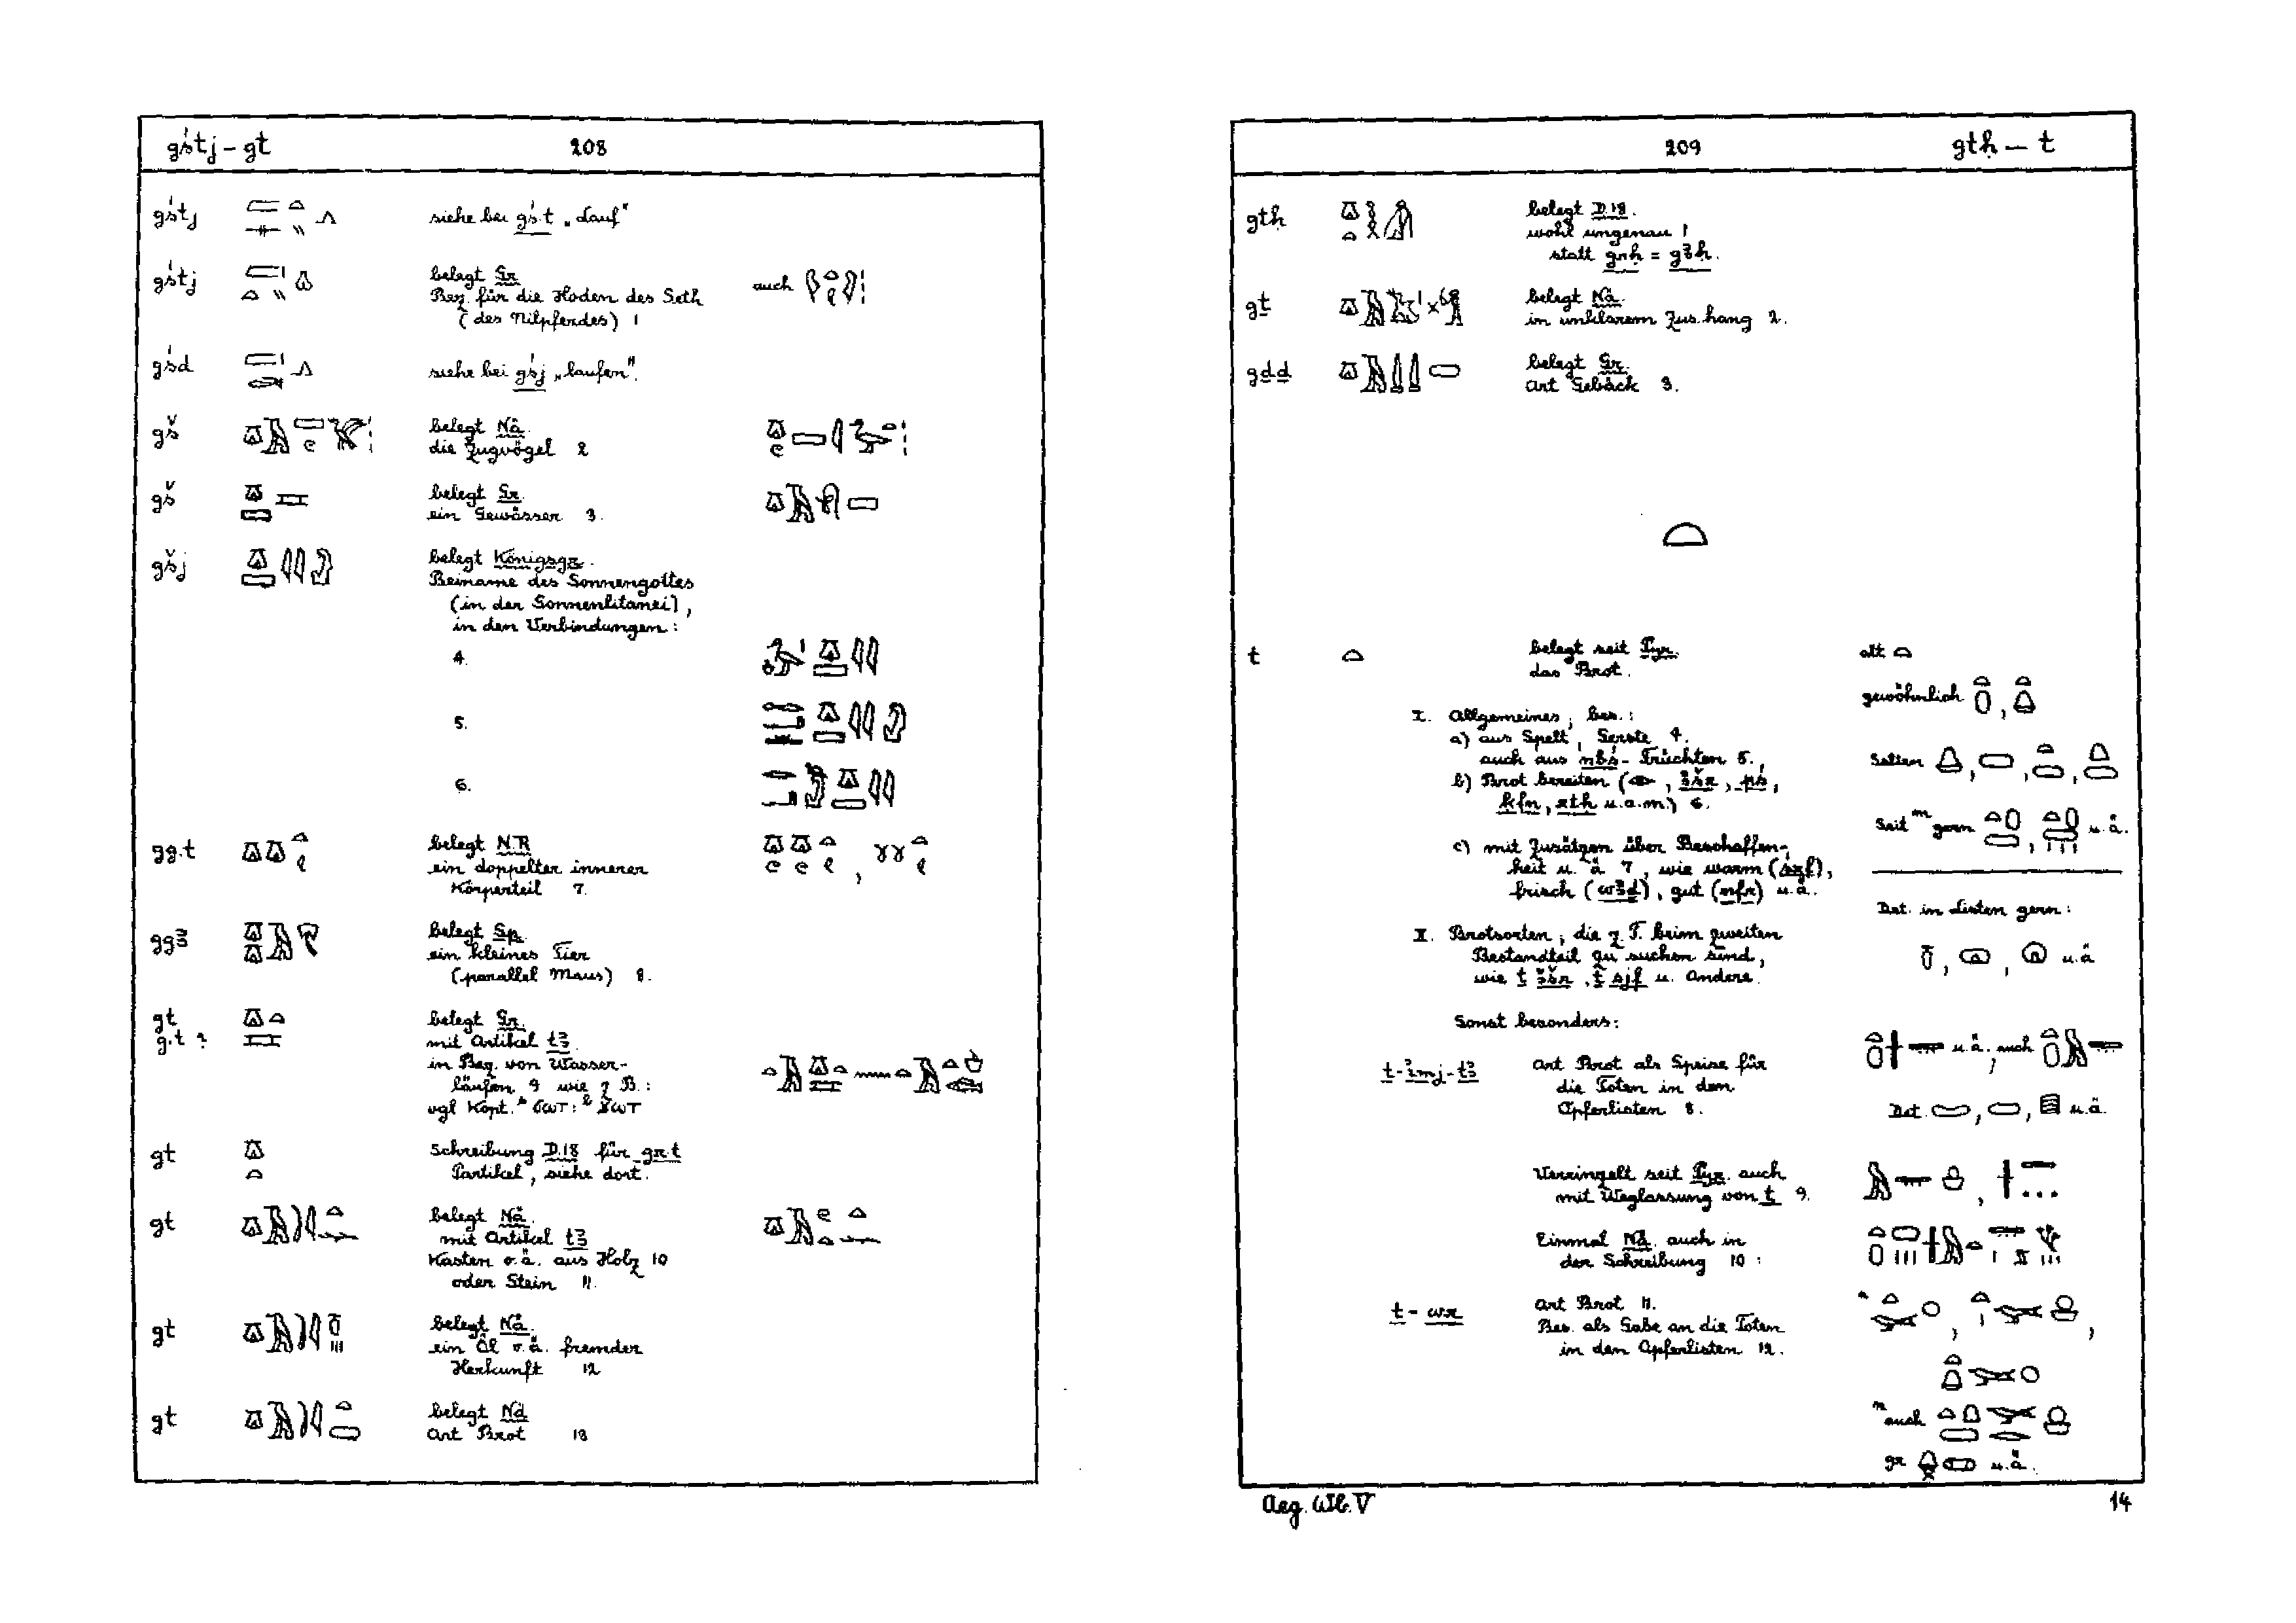 gśtj – gt 208
gśtj siehe bei gś.t „Lauf"
gśtj belegt Gr.
Bez. für die Hoden des Seth auch
(des Nilpferdes) 1
gśd siehe bei gśj „laufen".
gš belegt Nä.
die Zugvögel 2
gš belegt Gr.
ein Gewässer 3.
gšj belegt Königsgr.
Beiname des Sonnengottes
(in der Sonnenlitanei),
in den Verbindungen:
4.
5.
6.
gg.t belegt N.R
ein doppelter innerer
Körperteil 7.
ggꜣ belegt Sp.
ein kleines Tier
(parallel Maus) 8.
gt belegt Gr.
g.t ? mit Artikel tꜣ
in Bez. von Wasser-
läufen 9 wie z B.:
vgl Kopt.
gt Schreibung D.18 für gr.t
Partikel, siehe dort.
gt belegt Nä.
mit Artikel tꜣ
Kasten o.ä. aus Holz 10
oder Stein 11.
gt belegt Nä.
ein Öl o.ä. fremder
Herkunft 12
gt belegt Nä
Art Brot 13
209 gtḥ – t
gtḥ belegt D.18.
wohl ungenau 1
statt gnḥ = gꜣḥ.
gṯ belegt Nä.
in unklarem Zus.hang 2.
gḏḏ belegt Gr.
Art Gebäck 3.
t belegt seit Pyr. alt
das Brot.
gewöhnlich
I. Allgemeines, bes.:
a) aus Spelt, Gerste 4.
auch aus nbś-Früchten 5.,
Selten
b) Brot bereiten ( , ꜣšr, pś,
ḳfn, rtḥ u.a.m) 6.
Seit gern u. ä.
c) mit Zusätzen über Beschaffen-
heit u. ä 7, wie warm (srf),
frisch (wꜣḏ), gut (nfr) u.ä.
Det. in Listen gern:
u.ä
II. Brotsorten, die z.T. beim zweiten
Bestandteil zu suchen sind,
wie t ꜣšr, t sjf u. Andere.
Sonst besonders:
t-imj-tꜣ Art Brot als Speise für u.ä., auch
die Toten in den
Opferlisten 8. Det. u.ä.
Vereinzelt seit Pyr. auch
mit Weglassung von t 9.
Einmal Nä. auch in
der Schreibung 10:
t-wr Art Brot 11.
Bes. als Gabe an die Toten
in den Opferlisten 12.
auch
gr u.ä.
Aeg. Wb. V 14